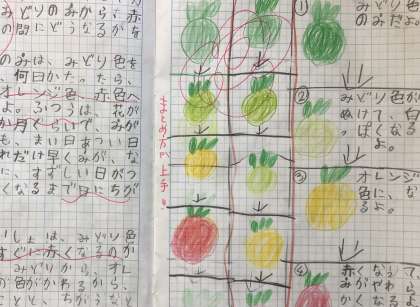 みどりから、赤
の間にどうなるかな
のみは、みどり色を
、何日かたったら、
オレンジ色、赤色へ
よ。ふつうは、花が
か月くらいで、みが
も、まい日あつい日
れだけ早くみが、な
に、すずしい日がつ
くなるまで日にちが
は、みどり色
すぐに赤くなるのか
みどりから、オレ
の色がかわるから、
まとめ方が上手!!
①
みどり色
のみだよ。
②
みどり色が
ぬけて、白
っぽくなる
よ。
③
オレンジ
色に、な
るよ。
④
赤くなって